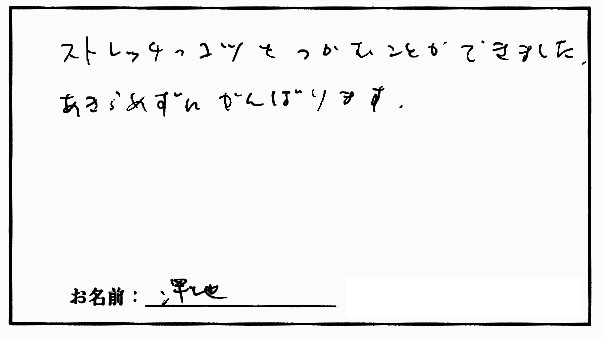 ストレッチのコツをつかむことができました。
あきらめずにがんばります。
お名前：澤地